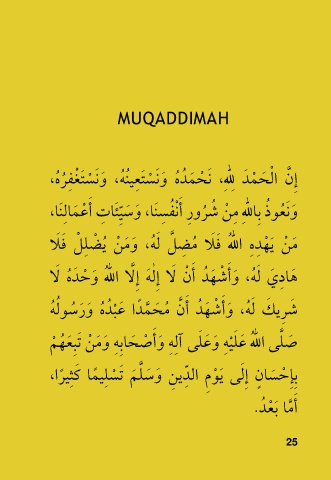 MUQADDIMAH
إِنَّ الْحَمْدَ لِلهِ، نَحْمَدُهُ وَنَسْتَعِينُهُ، وَنَسْتَغْفِرُهُ،
وَنَعُوذُ بِاللهِ مِنْ شُرُورِ أَنْفُسِنَا، وَسَيِّئَاتِ أَعْمَالِنَا،
مَنْ يَهْدِهِ اللهُ فَلَا مُضِلَّ لَهُ، وَمَنْ يُضْلِلْ فَلَا
هَادِيَ لَهُ، وَأَشْهَدُ أَنْ لَا إِلٰهَ إِلَّا اللهُ وَحْدَهُ لَا
شَرِيكَ لَهُ، وَأَشْهَدُ أَنَّ مُحَمَّدًا عَبْدُهُ وَرَسُولُهُ
صَلَّى اللهُ عَلَيْهِ وَعَلَى آلِهِ وَأَصْحَابِهِ وَمَنْ تَبِعَهُمْ
بِإِحْسَانٍ إِلَى يَوْمِ الدِّينِ وَسَلَّمَ تَسْلِيمًا كَثِيرًا،
أَمَّا بَعْدُ.
25